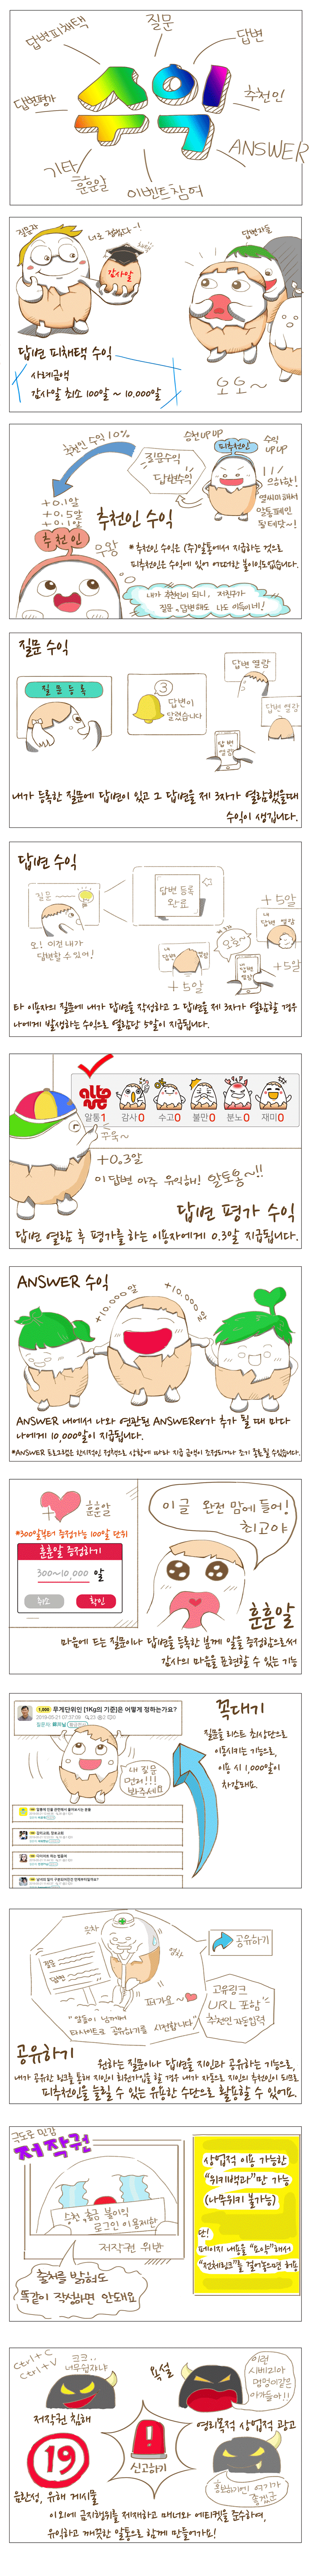 질문
답변피채택
답변
답변평가
수익
추천인
기타
훈훈알
이벤트참여
ANSWER
질문자
너로 정했다~!
감사알
답변자들
답변 피채택 수익
사례금액
감사알 최소 100알 ~ 10,000알
오오~
추천인 수익 10%
질문수익
답변수익
승천 UP UP
피추천인
수익
UP UP
으하핫!
열씨미해서
+0.1알
+0.5알
+0.1알
추천인
우왕
추천인 수익
*추천인 수익은 (주)알통에서 지급하는 것으로
피추천인은 수익에 있어 어떠한 불이익도없습니다.
내가 추천인이 되니, 저친구가
질문, 답변해도 나도 이득이네!
질문 수익
질문등록
3
답변이
달렸습니다
답변 열람
답변 열람
답변
열람
내가 등록한 질문에 답변이 있고 그 답변을 제 3자가 열람했을때
수익이 생깁니다.
답변 수익
질문
오! 이건 내가
답변할 수 있어!
답변 등록
완료
+5알
내
답변 열람
오호~
+5알
+5알
타 이용자의 질문에 내가 답변을 작성하고 그 답변을 제 3자가 열람할 경우
나에게 발생하는 수익으로 열람당 5알이 지급됩니다.
알통1 감사0 수고0 불만0 분노0 재미0
꾸욱~
+0.3알
이 답변 아주 유익해! 알토옹~!!
답변 평가 수익
답변 열람 후 평가를 하는 이용자에게 0.3알 지급됩니다.
ANSWER 수익
+10,000알
+10,000알
ANSWER 내에서 나와 연관된 ANSWERer가 추가 될 때 마다
나에게 10,000알이 지급됩니다.
*ANSWER 프로그램은 한시적인 정책으로 상황에 따라 지급 금액이 조정되거나 조기 종료될 수있습니다.
훈훈알
*300알부터 증정가능 100알 단위
훈훈알 증정하기
300~10,000 알
취소
확인
이 글 완전 맘에 들어!
최고야
훈훈알
마음에 드는 질문이나 답변을 등록한 분께 알을 증정함으로써
감사의 마음을 표현할 수 있는 기능
1,000 무게단위인 [1Kg의 기준]은 어떻게 정하는가요?
2019-05-21 07:37:09
내 질문
먼저!!!
봐주세요
꼭대기
질문을 리스트 최상단으로
이동시키는 기능으로,
이용 시 1,000알이
차감돼요.
질문
답변
으쌰
영차
퍼가요~
"알통이 넘쳐나
타사이트로 공유하기를 시전합니다"
공유하기
고유링크
URL 포함
추천인 자동입력
공유하기
원하는 질문이나 답변을 지인과 공유하는 기능으로,
내가 공유한 링크를 통해 지인이 회원가입을 할 경우 내가 자동으로 지인의 추천인이 되므로
피추천인을 늘릴 수 있는 유용한 수단으로 활용할 수 있어요.
극도로 민감
저작권
승천, 출금 불이익
로그인 이용제한
저작권 위반
출처를 밝혀도
똑같이 작성하면 안돼요
상업적 이용 가능한
"위키백과"만 가능
(나무위키 불가능)
단!
페이지 내용을 "요약"해서
"전체링크"를 걸어놓으면 허용
Ctrl+C
Ctrl+V
크크..
너무쉽자냐
저작권 침해
욕설
이런
시베리아
멍멍이같은
아가들아!!
영리목적 상업적 광고
19
음란성, 유해 게시물
신고하기
홍보하기엔 여기가
좋겠군
이 외에 금지행위를 제재하고 매너와 에티켓을 준수하여,
유익하고 깨끗한 알통으로 함께 만들어가요!